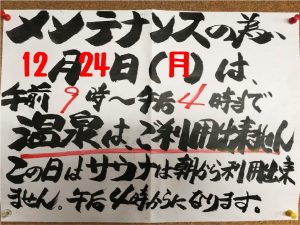 メンテナンスの為、
12月24日(月)は、
午前9時〜午后4時まで
温泉は、ご利用出来ません
この日はサウナは朝から利用出来
ません。午后4時からになります。